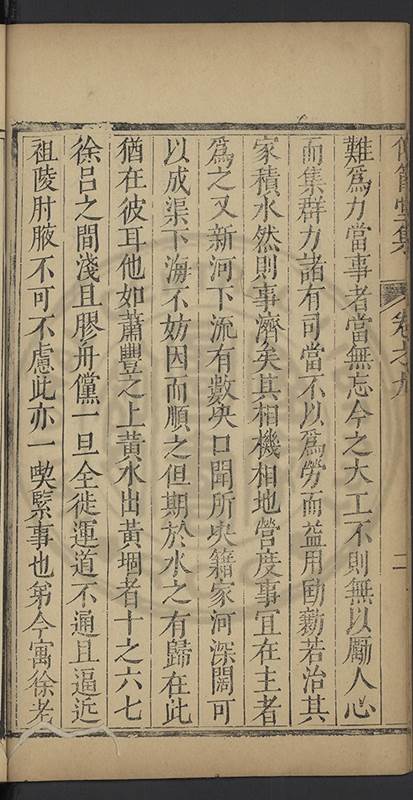 卷之九
二
難爲力當事者當無忘今之大工不則無以勵人心
而集群力諸有司當不以爲勞而益用勸若治其
家積水然則事濟矣其相機相地營度事宜在主者
爲之又新河下流有數決口聞所決籍家河深闊可
以成渠下海不妨因而順之但期於水之有歸在此
猶在彼耳他如蕭豐之上黃水出黃堌者十之六七
徐呂之間淺且膠舟儻一旦全徙運道不通且逼近
祖陵肘腋不可不慮此亦一喫緊事也第今寓徐老